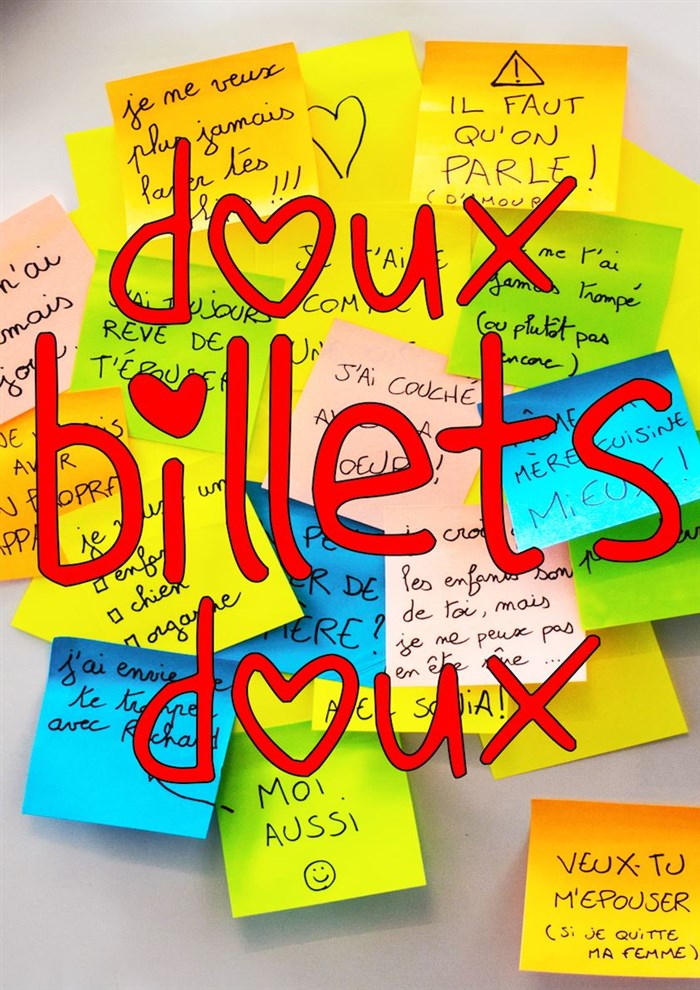 je ne veux
plus jamais
laver tes
!!!
IL FAUT
QU'ON
PARLE!
(D'AMOUR
doux
billets
doux
n'ai
J'AI TOUJOURS
RÊVÉ DE
T'ÉPOUSER
JE T'AIME
COMME
UN
je ne t'ai
jamais trompé
(ou plutôt pas
encore)
J'AI COUCHÉ
AVEC TA
SOEUR!
MÈRE CUISINE
MIEUX!
AVOIR
PROPRE
je veux un
enfant
chien
orgasme
DE
je crois
les enfants sont
de toi, mais
je ne peux pas
en être sûre ...
j'ai envie de
te tromper
avec Richard
AVEC SONIA!
MOI
AUSSI
VEUX-TU
M'EPOUSER
(SI JE QUITTE
MA FEMME)